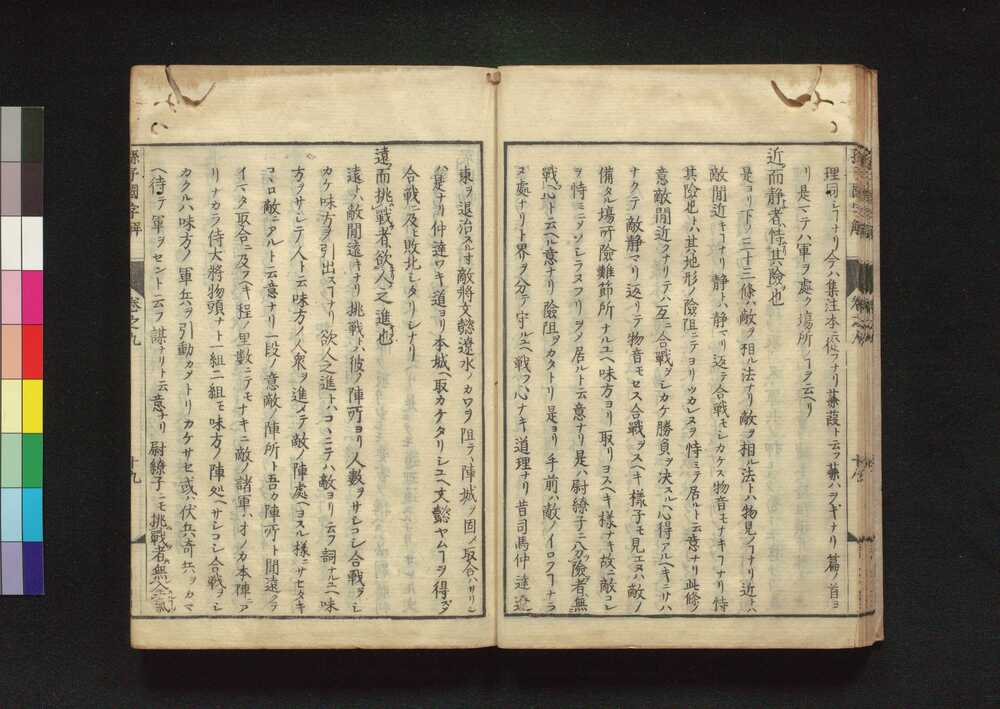 理同シコトナリ今ハ集注本ニ從フナリ蘙薈ト云フ蘙ハヲギナリ篇ノ首ヨ
リ是マテハ軍ヲ處ク塲所ノコヲ云ヘリ
近而静者恃其險也
是ヨリ下ノ三十三條ハ敵ヲ相ル法ナリ敵ヲ相ル法トハ物見ノコナリ近トハ
敵間近キコナリ静トハ静マリ返テ合戰モシカケス物音モナキコナリ恃
其險也トハ其地形ノ險阻ニテヨリツカレヌヲ恃ミテ居ルト云意ナリ此條ノ
意敵間近クナリテハ互ニ合戰ヲシカケ勝負ヲ決スル心得アルヘキニサハ
ナクテ敵静マリ返リテ物音モセス合戰ヲスヘキ様子モ見エヌハ敵ノ
備タル塲所險難節所ナルユヘ味方ヨリ取リヨスヘキ様ナキ故ニ敵コレ
ヲ恃ミニシソシラヌフリヲシ居ルト云意ナリ是ハ尉繚子ニ分險者無
戰心ト云ヘル意ナリ險阻ヲカタトリ是ヨリ手前ハ敵ノイロフコナラ
ヌ處ナリト界ヲ分テ守ルユヘ戰フ心ナキ道理ナリ昔司馬仲達遼
東ヲ退治スル寸敵將文懿遼水ノカワヲ阻テ陣城ヲ固メ取合ハサリシ
ハ是ナリ仲達ワキ道ヨリ本城ヘ取カケタリユヘニ文懿ヤムコヲ得ズ
合戰ニ及ヒ敗北シタリシナリ
遠而挑戰者欲人之進也
遠トハ敵間遠キナリ挑戰トハ彼ノ陣所ヨリ人數ヲサシコシ合戰ヲシ
カケ味方ヲ引出スコナリ欲人之進トハコヽニテハ敵ヨリ云フ詞ナルユヘ味
方ヲサシテ人ト云味方ノ人衆ヲ進メテ敵ノ陣處ヘヨスル様ニサセタキ
コヽロ敵ニアルト云意ナリ一段ノ意敵ノ陣所ト吾カ陣所ト間遠クシテ
イマタ取合ニ及フヘキ程ノ里數ニテモナキニ敵ノ諸軍ハオノカ本陣ニア
リナカラ侍大將物頭ナト一組二組モ味方ノ陣処ヘサシコシ合戰ヲシ
カクルハ味方ノ軍兵ヲ引動カタトリカケサセ或ハ伏兵奇兵ヲカマ
ヘ待テ軍ヲセントニ云フ謀ナリト云意ナリ 尉繚子ニモ挑戰者無全氣
孫子國字解 卷之九 十九